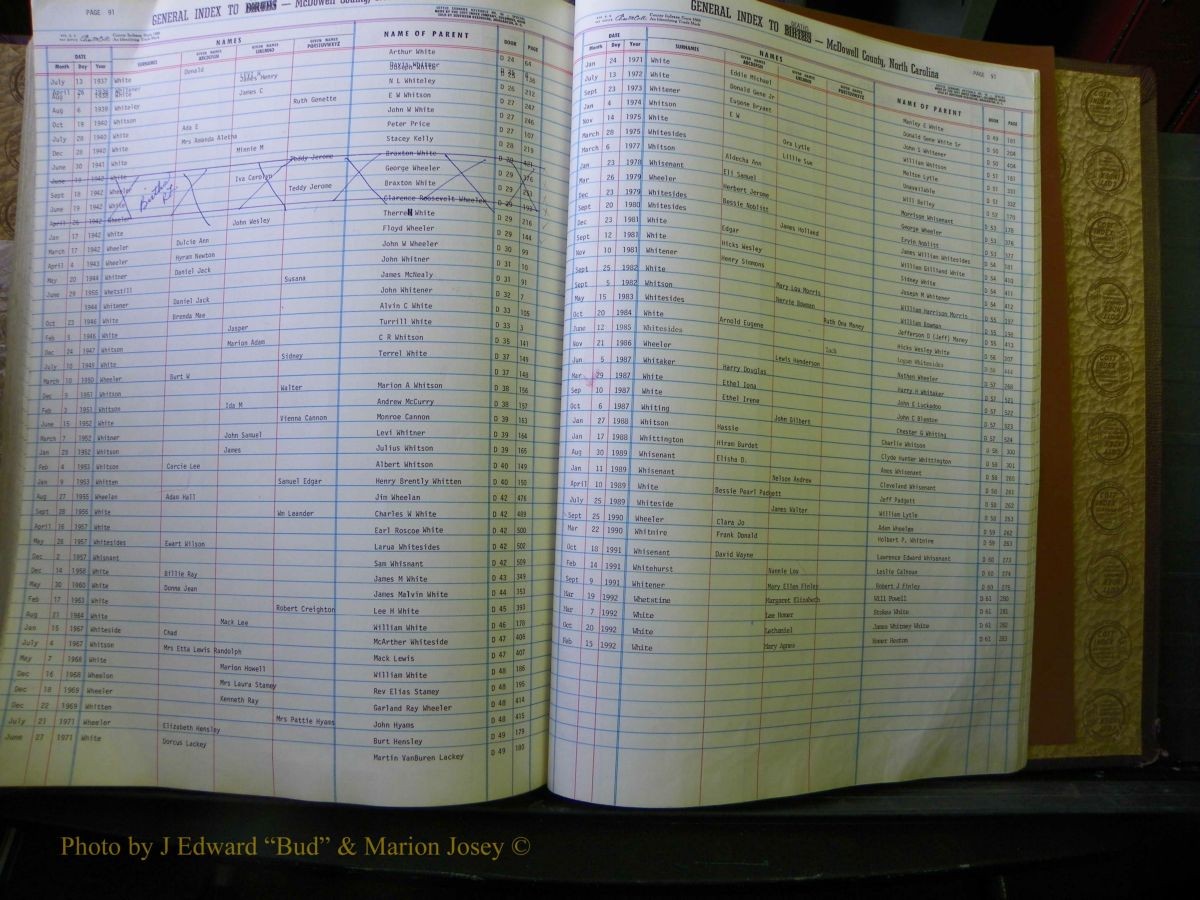 PAGE 91
GENERAL INDEX TO BIRTHS — McDowell County,
NAMES
DATE
SURNAMES
NAME OF PARENT
BOOK PAGE
Month Day Year
Donald Arthur White D 24 64
July 13 1937 White
James C N L Whiteley D 26
Aug 6 1939 Whiteley Ruth Genette E W Whitson D 27
Oct 19 1940 Whitson John W White D 27 246
July 28 1940 White Ada E Peter Price D 27 107
Dec 28 1940 White Mrs Amanda Aletha Stacey Kelly D 28 219
June 30 1941 White Minnie M Braxton White
Teddy Jerome
Sept 18 1942 Wheeler Iva Carolyn George Wheeler D 29
June 19 1942 White Teddy Jerome Braxton White D 29
Births
Clarence Roosevelt Wheeler
Jan 17 1942 White John Wesley Therrel White D 29 216
March 17 1942 Wheeler Dulcie Ann Floyd Wheeler D 29 144
April 4 1943 Wheeler Hyram Newton John W Wheeler D 30 99
May 20 1944 Whitner Daniel Jack John Whitner D 31 10
June 29 1955 Whetstill Susana James McNealy D 31 91
1944 Whitener Daniel Jack John Whitener D 32 7
Oct 23 1946 White Brenda Mae Alvin C White D 33 105
Feb 5 1946 White Jasper Turrill White D 33 3
Dec 24 1947 Whitson Marion Adam C R Whitson D 35 141
July 10 1949 White Sidney Terrel White D 37 149
March 10 1950 Wheeler Burt W D 37 148
Dec 9 1951 Whitson Walter Marion A Whitson D 38 156
Feb 3 1951 Whitson Ida M Andrew McCurry D 38 157
June 15 1952 White Vienna Cannon Monroe Cannon D 39 163
March 7 1952 Whitner John Samuel Levi Whitner D 39 164
Jan 28 1952 Whitson James Julius Whitson D 39 165
Feb 4 1953 Whitson Carcie Lee Albert Whitson D 40 149
Jan 9 1953 Whitten Samuel Edgar Henry Brently Whitten D 40 150
Aug 27 1955 Wheelan Adam Hall Jim Wheelan D 42 476
Sept 28 1956 White Wm Leander Charles W White D 42 489
April 16 1957 White Earl Roscoe White D 42 500
May 26 1957 Whitesides Ewart Wilson Larua Whitesides D 42 502
Dec 2 1957 Whisnant Sam Whisnant D 42 509
Dec 14 1958 White Billie Ray James M White D 43 349
May 30 1960 White Donna Jean James Malvin White D 44 353
Feb 17 1963 White Robert Creighton Lee H White D 45 393
Aug 21 1964 White Mack Lee William White D 46 178
Jan 15 1967 Whiteside Chad McArther Whiteside D 47 406
July 4 1967 Whitson Mrs Etta Lewis Randolph Mack Lewis D 47 407
May 7 1968 White Marion Howell William White D 48 186
Dec 16 1968 Wheelon Mrs Laura Stamey Rev Elias Stamey D 48 195
Dec 18 1969 Wheeler Kenneth Ray Garland Ray Wheeler D 48 414
Dec 22 1969 Whitten Mrs Pattie Hyams John Hyams D 48 415
July 21 1971 Wheeler Elizabeth Hensley Burt Hensley D 49 179
June 27 1971 White Dorcus Lackey Martin VanBuren Lackey D 49 180
GENERAL INDEX TO DEATHS BIRTHS — McDowell County, North Carolina
PAGE 91
DATE
SURNAMES
NAMES
NAME OF PARENT
BOOK PAGE
Month Day Year
Jan 24 1971 White Eddie Michael Manley E White D 49 181
July 13 1972 White Donald Gene Jr Donald Gene White Sr D 50 204
Sept 23 1973 Whitener Eugene Bryant John S Whitener D 50 404
Jan 4 1974 Whitson E W William Whitson D 51 181
Nov 14 1975 White Ora Lytle Melton Lytle D 51 331
March 28 1975 Whitesides Lillie Sue Unavailable D 51 332
March 6 1977 Whitson Aldecha Ann Will Bailey D 52 170
Jan 23 1978 Whisenant Eli Samuel Morrison Whisenant D 53 178
Mar 26 1979 Wheeler Herbert Jerome George Wheeler D 53 376
Dec 23 1979 Whitesides Bessie Noblitt Ervin Noblitt D 53 377
Sept 20 1980 Whitesides James Holland James William Whitesides D 54 181
Dec 23 1981 White Edgar William Gilliand White D 54 410
Sept 12 1981 White Hicks Wesley Sidney White D 54 411
Nov 10 1981 Whitener Henry Simmons Joseph M Whitener D 54 412
Sept 25 1982 White Mary Lou Morris William Harrison Morris D 55 197
Sept 5 1982 Whitson Hennie Bowman William Bowman D 55 198
May 15 1983 Whitesides Ruth Ora Haney Jefferson D (Jeff) Maney D 55 413
Oct 20 1984 White Arnold Eugene Hicks Wesley White D 56 207
June 12 1985 Whitesides Zack Logan Whitesides D 56 444
Nov 21 1986 Wheeler Lewis Henderson Nathan Wheeler D 57 268
Jun 5 1987 Whitaker Harry Douglas Harry H Whitaker D 57 521
Mar 29 1987 White Ethel Iona John G Luckadoo D 57 522
Sep 10 1987 White Ethel Irene John C Blanton D 57 523
Oct 6 1987 Whiting John Gilbert Chester G Whiting D 57 524
Jan 27 1988 Whitson Hassie Charlie Whitson D 58 300
Jan 17 1988 Whittington Hiram Burdet Clyde Hunter Whittington D 58 301
Aug 30 1989 Whisenant Elisha D. Amos Whisenant D 58 260
Jan 11 1989 Whisenant Nelson Andrew Cleveland Whisenant D 58 261
April 10 1989 White Bessie Pearl Padgett Jeff Padgett D 58 262
July 25 1989 Whiteside James Walter William Lytle D 58 263
Sept 25 1990 Wheeler Clara Jo Adam Wheelan D 59 262
Mar 22 1990 Whitmire Frank Donald Holbert P. Whitmire D 59 263
Oct 18 1991 Whisenant David Wayne Lawrence Edward Whisenant D 60 273
Feb 14 1991 Whitehurst Nannie Lou Leslie Calhoun D 60 274
Sept 9 1991 Whitener Mary Ellen Finley Robert J Finley D 60 275
Mar 19 1992 Whetstine Margaret Elizabeth Will Powell D 61 280
Mar 7 1992 White Lee Homer Stokes White D 61 281
Oct 20 1992 White Lethaniel James Whitney White D 61 282
Feb 15 1992 White Mary Agnes Homer Heston D 61 283
Photo by J Edward “Bud” & Marion Josey ©